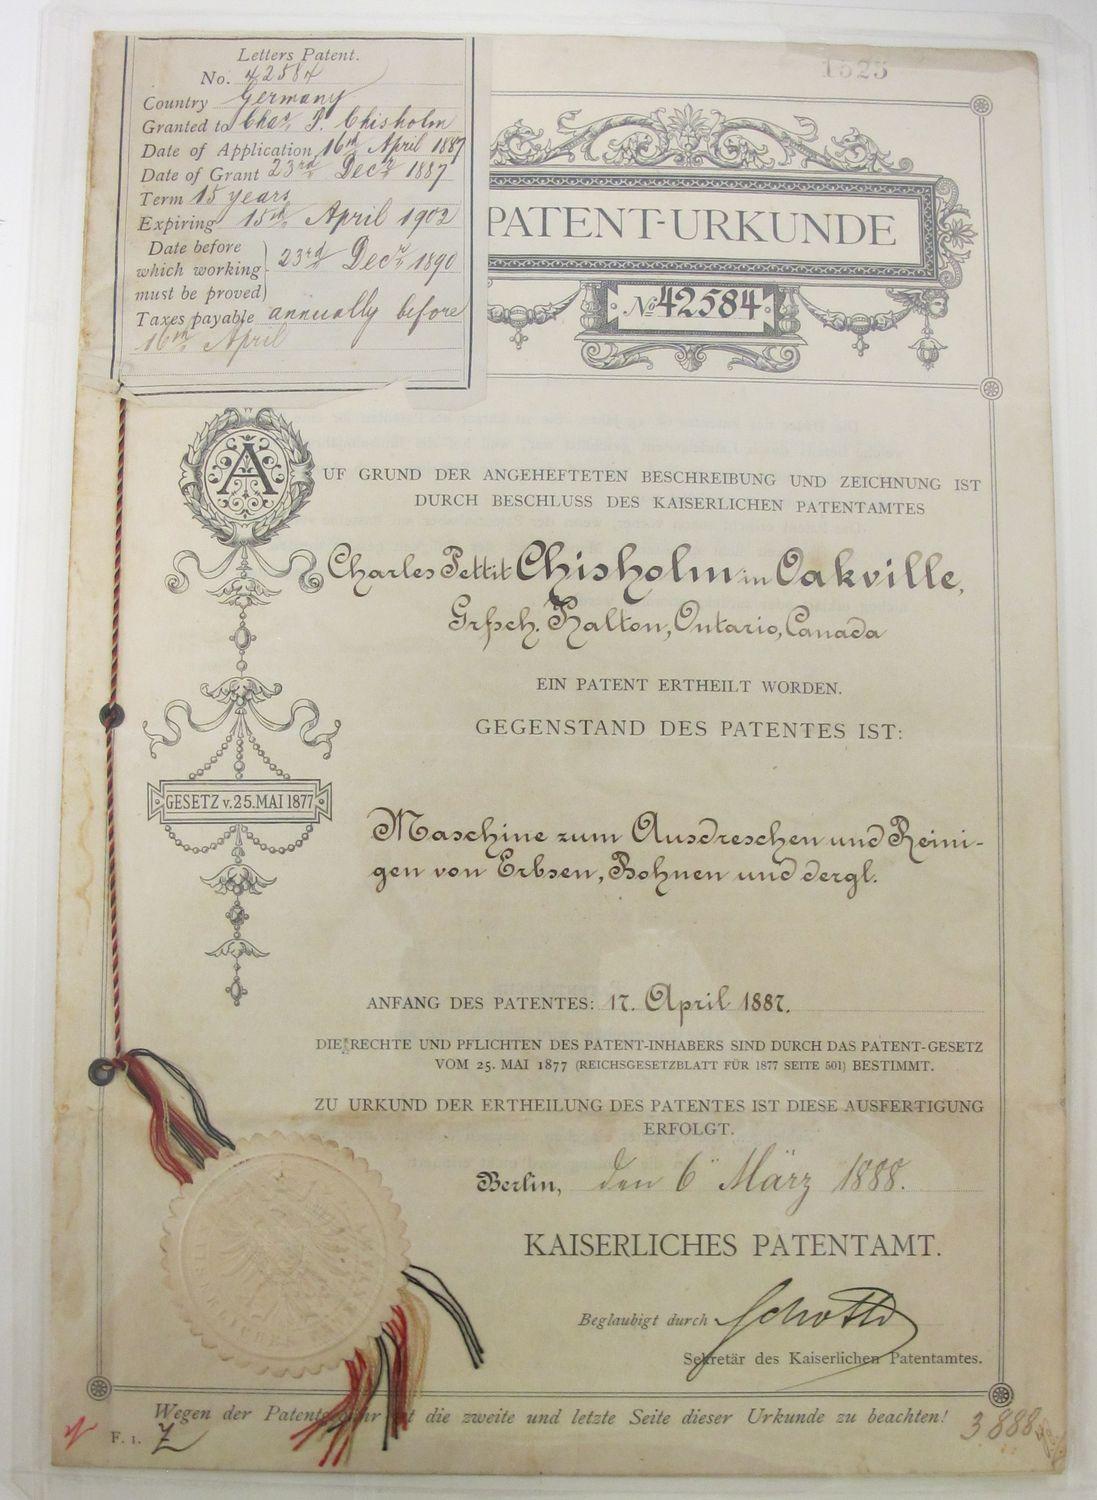 Letters Patent.
No. 42584
Country Germany
Granted to Chas. P. Chisholm
Date of Application 16th April 1887
Date of Grant 23rd Decr 1887
Term 15 years
Expiring 15th April 1902
Date before
which working
must be proved
23rd Decr 1890
Taxes payable annually before
16th April
1523
PATENT-URKUNDE
No 42584
AUF GRUND DER ANGEHEFTETEN BESCHREIBUNG UND ZEICHNUNG IST
DURCH BESCHLUSS DES KAISERLICHEN PATENTAMTES
Charles Pettit Chisholm in Oakville,
Grfsch. Halton, Ontario, Canada
EIN PATENT ERTHEILT WORDEN.
GEGENSTAND DES PATENTES IST:
GESETZ v. 25. MAI 1877
Maschine zum Ausdreschen und Reini-
gen von Erbsen, Bohnen und dergl.
ANFANG DES PATENTES: 17. April 1887.
DIE RECHTE UND PFLICHTEN DES PATENT-INHABERS SIND DURCH DAS PATENT-GESETZ
VOM 25. MAI 1877 (REICHSGESETZBLATT FÜR 1877 SEITE 501) BESTIMMT.
ZU URKUND DER ERTHEILUNG DES PATENTES IST DIESE AUSFERTIGUNG
ERFOLGT.
Berlin, den 6ten März 1888.
KAISERLICHES PATENTAMT.
Beglaubigt durch
Sekretär des Kaiserlichen Patentamtes.
Wegen der die zweite und letzte Seite dieser Urkunde zu beachten!
F. 1.
3.888